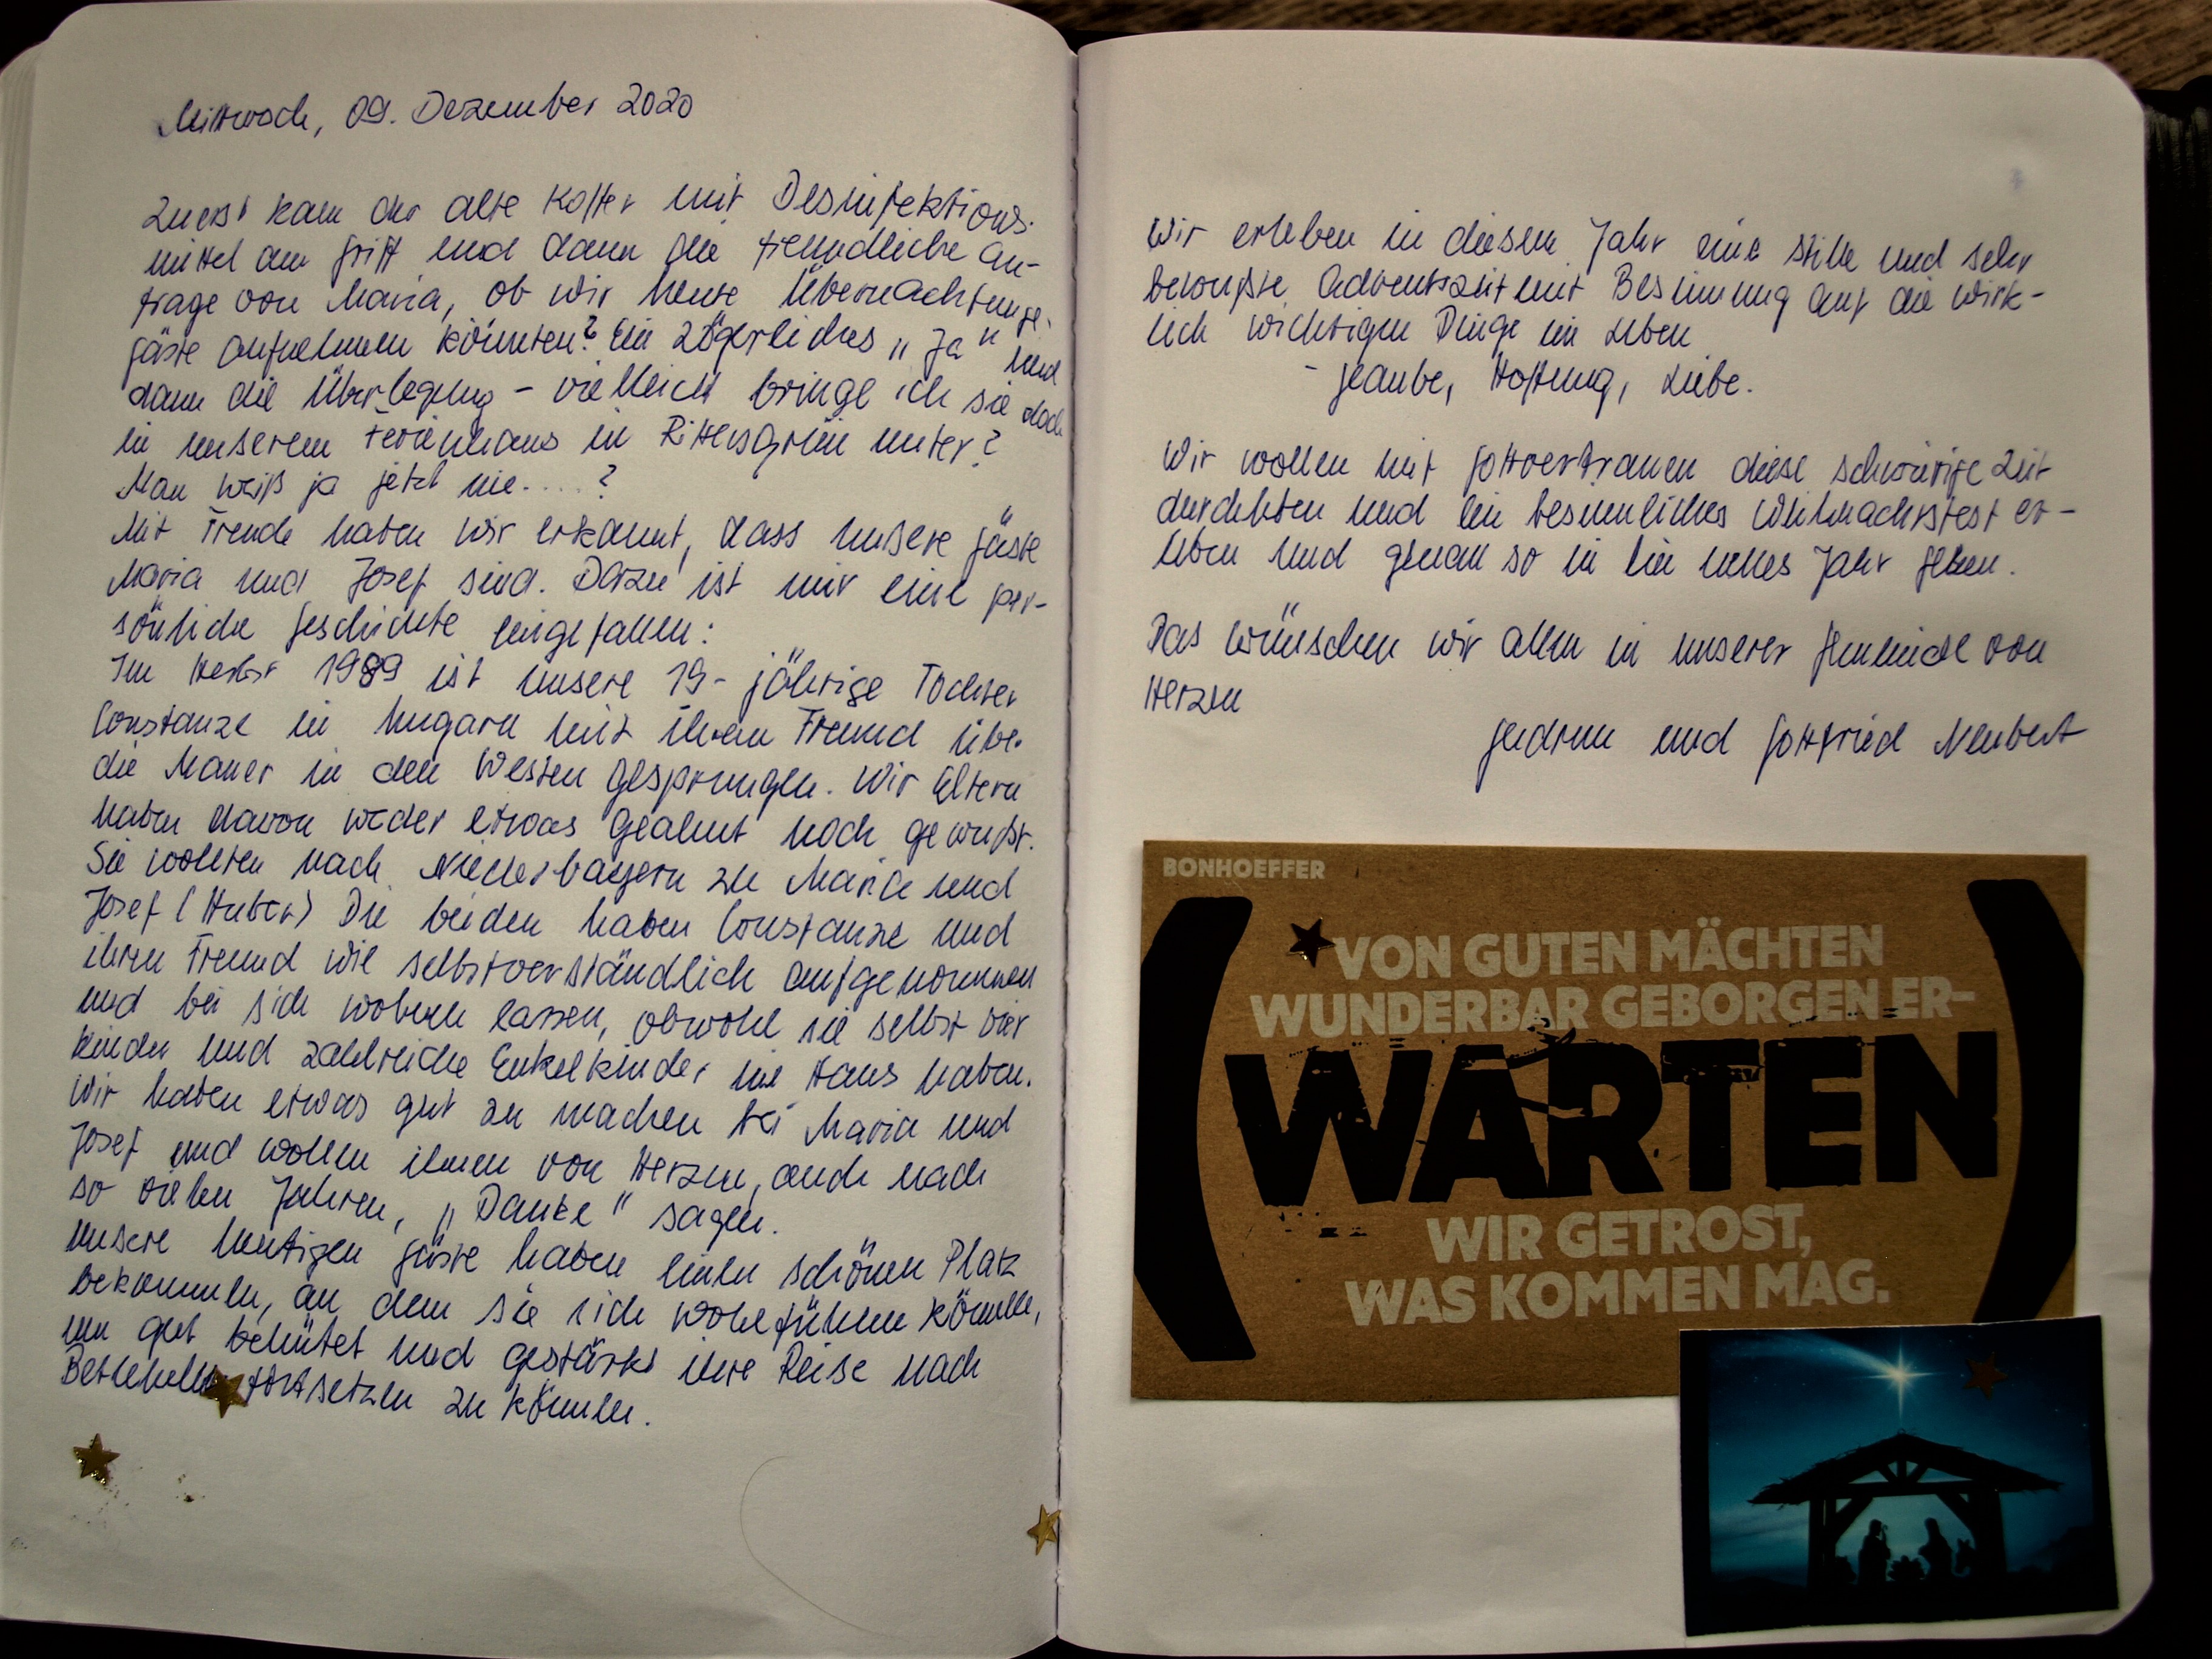 Mittwoch, 09. Dezember 2020
Zuerst kam der alte Koffer mit Desinfektions-
mittel am Griff und dann die freundliche An-
frage von Maria, ob wir heute Übernachtungs-
gäste aufnehmen könnten? Ein zögerliches „Ja" und
dann die Überlegung – vielleicht bringe ich sie doch
in unserem Ferienhaus in Rittersgrün unter?
Man weiß ja jetzt nie....?
Mit Freude haben wir erkannt, dass unsere Gäste
Maria und Josef sind. Dazu ist mir eine per-
sönliche Geschichte eingefallen:
Im Herbst 1989 ist unsere 19-jährige Tochter
Constanze in Ungarn mit ihrem Freund über
die Mauer in den Westen gesprungen. Wir Eltern
haben davon weder etwas geahnt noch gewußt.
Sie wollten nach Niederbayern zu Maria und
Josef (Huber) Die beiden haben Constanze und
ihren Freund wie selbstverständlich aufgenommen
und bei sich wohnen lassen, obwohl sie selbst vier
Kinder und zahlreiche Enkelkinder im Haus haben.
Wir haben etwas gut zu machen bei Maria und
Josef und wollen ihnen von Herzen, auch nach
so vielen Jahren, „Danke" sagen.
Unsere heutigen Gäste haben einen schönen Platz
bekommen, an dem sie sich wohlfühlen können,
um gut behütet und gestärkt ihre Reise nach
Bethlehem fortsetzen zu können.
Wir erleben in diesem Jahr eine stille und sehr
bewußte Adventszeit mit Besinnung auf die wirk-
lich wichtigen Dinge im Leben
- Glaube, Hoffnung, Liebe.
Wir wollen mit Gottvertrauen diese schwierige Zeit
durchleben und ein besinnliches Weihnachtsfest er-
leben und genau so in ein neues Jahr gehen.
Das wünschen wir allen in unserer Gemeinde von
Herzen
Gudrun und Gottfried Neubert
BONHOEFFER
VON GUTEN MÄCHTEN
WUNDERBAR GEBORGEN ER-
(WARTEN)
WIR GETROST,
WAS KOMMEN MAG.